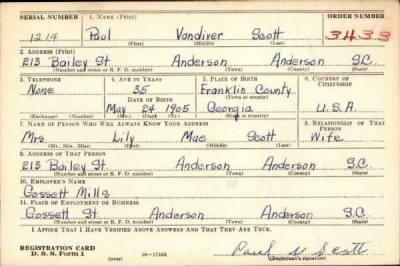 SERIAL NUMBER 1. NAME (Print) ORDER NUMBER
1214 Paul Vandiver Scott 3433
(First) (Middle) (Last)
2. ADDRESS (Print)
213 Bailey St. Anderson Anderson S.C.
(Number and street or R. F. D. number) (Town) (County) (State)
3. TELEPHONE 4. AGE IN YEARS 5. PLACE OF BIRTH 6. COUNTRY OF CITIZENSHIP
None 35 Franklin County
(Town or county)
DATE OF BIRTH
May 24 1905 Georgia U.S.A.
(Exchange) (Number) (Mo.) (Day) (Yr.) (State or country)
7. NAME OF PERSON WHO WILL ALWAYS KNOW YOUR ADDRESS 8. RELATIONSHIP OF THAT PERSON
Mrs Lily Mae Scott Wife
(Mr., Mrs., Miss) (First) (Middle) (Last)
9. ADDRESS OF THAT PERSON
213 Bailey St. Anderson Anderson S.C.
(Number and street or R. F. D. number) (Town) (County) (State)
10. EMPLOYER'S NAME
Gossett Mills
11. PLACE OF EMPLOYMENT OR BUSINESS
Gossett St. Anderson Anderson S.C.
(Number and street or R. F. D. number) (Town) (County) (State)
I AFFIRM THAT I HAVE VERIFIED ABOVE ANSWERS AND THAT THEY ARE TRUE.
REGISTRATION CARD
D. S. S. Form 1 (over) 16—17105 Paul V Scott
(Registrant's signature)